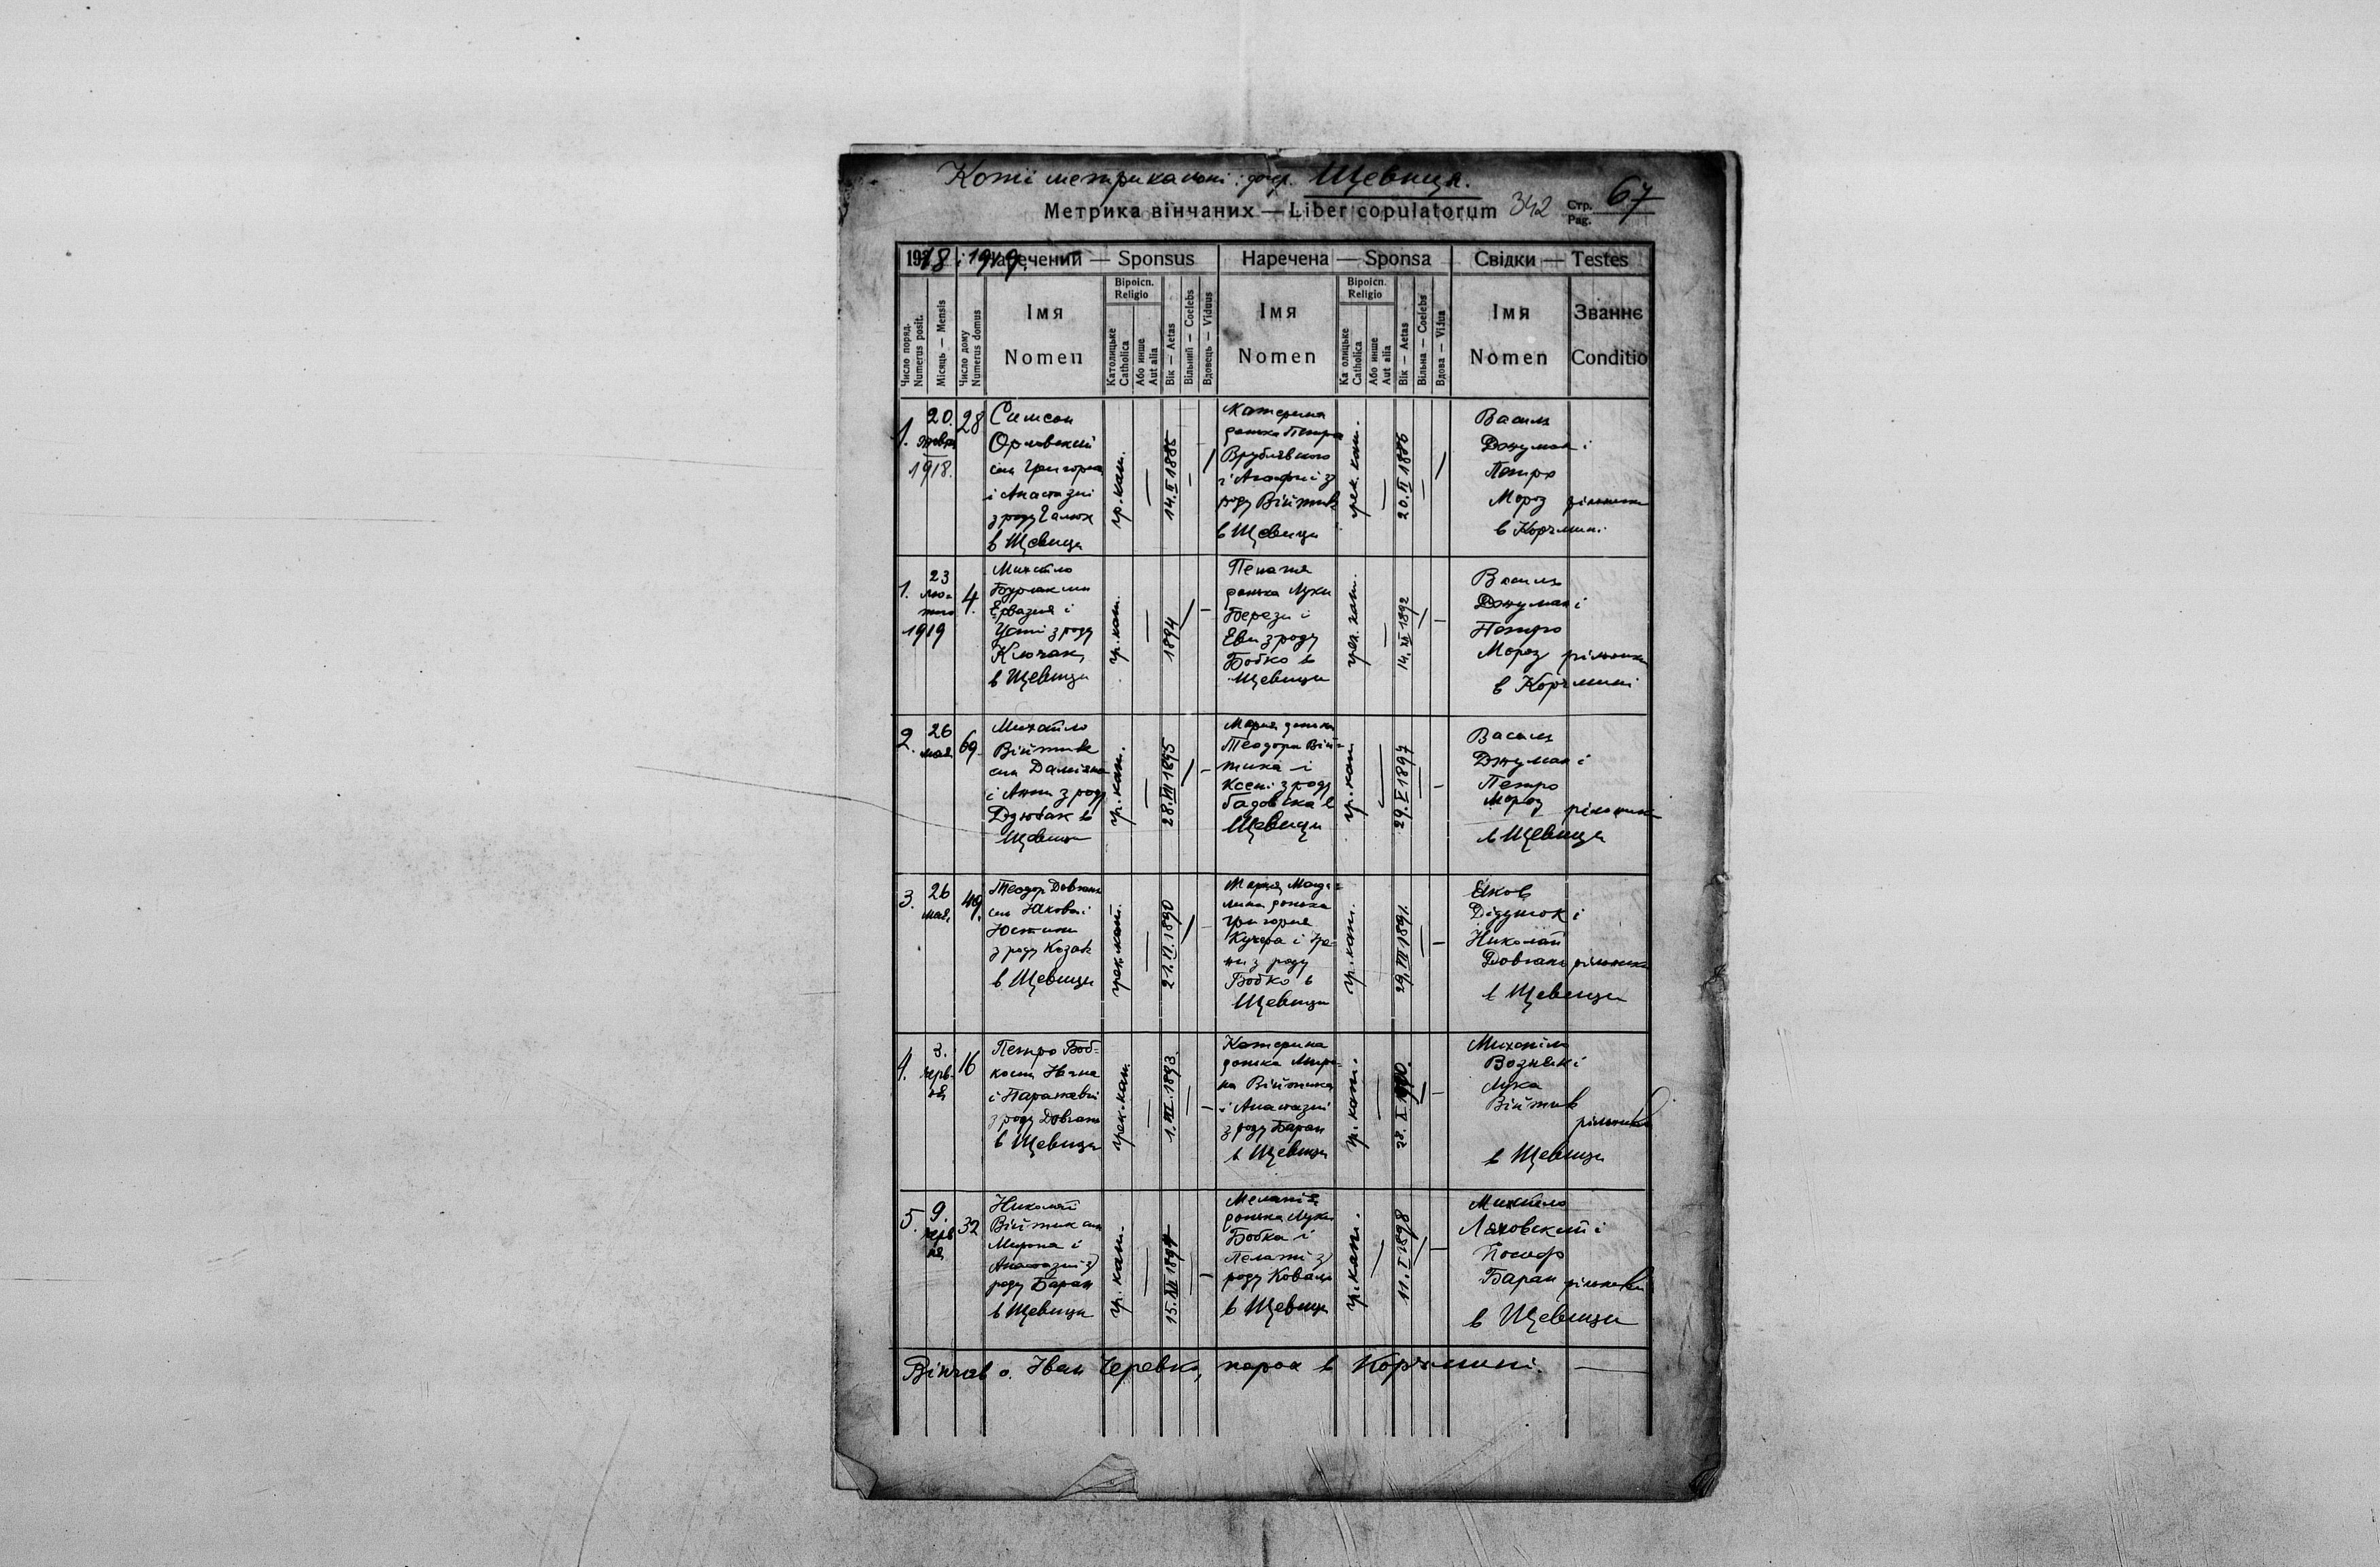 Копії метрикальні: дочер. Щевиця.
Метрика вінчаних — Liber copulatorum 342 Стр. Pag. 67
1918 і 1919. Наречений — Sponsus Наречена — Sponsa Свідки — Testes
Число поряд. Numerus posit.
Місяць — Mensis
Число дому Numerus domus
Імя Nomen
Віроісп. Religio
Католицьке Catholica
Або инше Aut alia
Вік — Aetas
Вільний — Coelebs
Вдовець — Viduus
Імя Nomen
Віроісп. Religio
Ка олицьке Catholica
Або инше Aut alia
Вік — Aetas
Вільна — Coelebs
Вдова — Vidua
Імя Nomen
Званнє Conditio
1.
20.
жовтн
1918.
28
Симеон
Орловский
син Григорія
і Анастазиї
з роду Галюх
в Щевици
гр. кат.
14. II 1885
Катерина
донька Петра
Врублівского
і Агафиї з
роду Війтик
в Щевици
грек. кат.
20. II 1886
Василь
Джуман і
Петро
Мороз рільники
в Корчмині
1.
23
лю-
того
1919
4.
Михайло
Бурлак син
Ервазия і
Усті з роду
Ключак
в Щевици
гр. кат.
1894
Пелагія
донька Луки
Берези і
Еви з роду
Бобко в
Щевици
грек. кат.
14. XI 1892
Василь
Джуман і
Петро
Мороз рільники
в Корчмині
2.
26
мая
69
Михайло
Війтик
син Даміяна
і Анни з роду
Дзюбак в
Щевици
гр. кат.
28. VII 1895
Мария донька
Теодора Вій-
тика і
Ксені з роду
Садовска в
Щевици
гр. кат
29. V 1897
Василь
Джуман і
Петро
Мороз рільники
в Щевици
3.
26
мая
49.
Теодор Довгань
син Якова і
Юстини
з роду Козак
в Щевици
грек. кат.
21. VI. 1890
Мария Магда-
лина донька
Григория
Кучера і Іре-
ни з роду
Бобко в
Щевици
гр. кат.
29. VII 1891.
Яков
Дідушок і
Николай
Довгань рільники
в Щевици
4.
3.
черв-
ня
16
Петро Боб-
ко син Івана
і Параскеви
з роду Довгань
в Щевици
грек. кат.
1. VII. 1893.
Катерина
донька Миро-
на Війтика
і Анастазиї
з роду Баран
в Щевици
гр. кат.
28. X 1900.
Михайло
Возняк і
Лука
Війтик
рільники
в Щевици
5.
9.
черв
ня
32
Николай
Війтик син
Мирона і
Анастазиї з
роду Баран
в Щевици
гр. кат.
15. XII 1894
Меланія
донька Луки
Бобка і
Пелагії з
роду Коваль
в Щевици
гр. кат.
11. I 1898
Михайло
Ляховский і
Йосиф
Баран рільники
в Щевици
Вінчав о. Іван Черевко, парох в Корчмині.